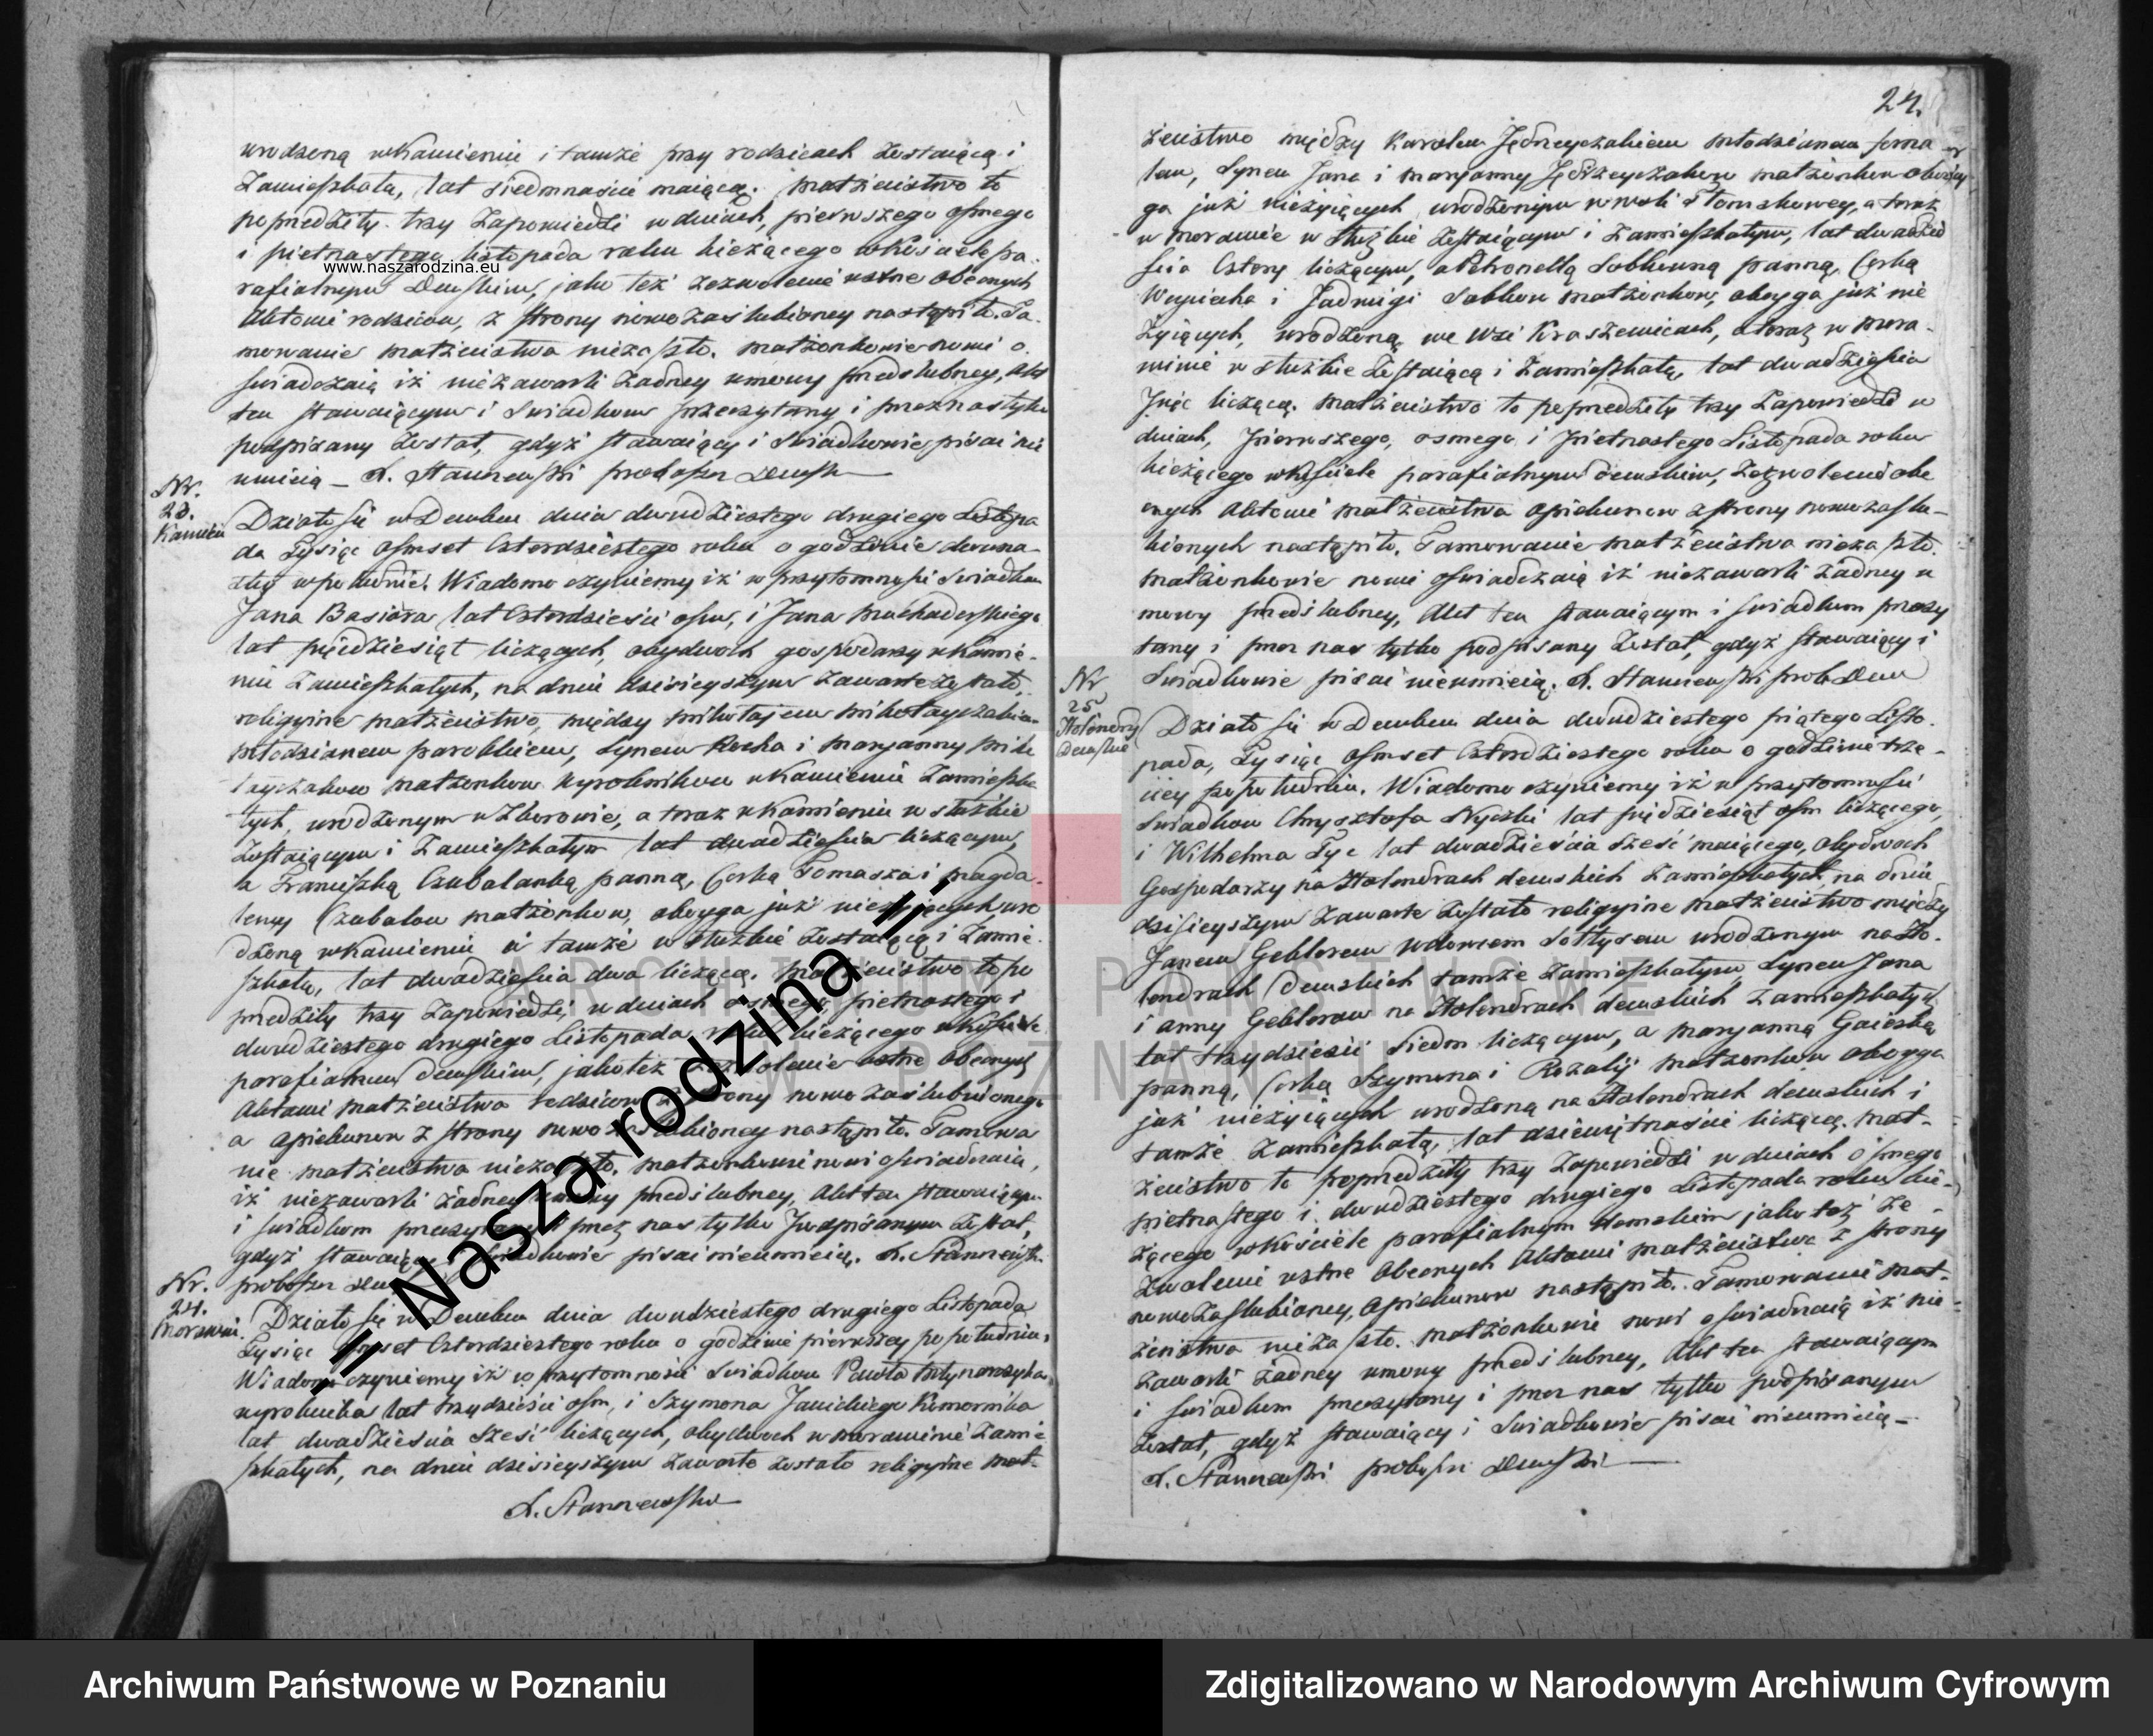 urodzoną w Kamieniu i tamże przy rodzicach zostaiącą i
zamieszkałą, lat siedmnaście maiącą. Małżeństwo to
poprzedziły trzy zapowiedzi w dniach, pierwszego osmego
i pietnastego listopada roku bieżącego w kościele pa-
www.naszarodzina.eu
rafialnym Dembskim, jako też zezwolenie ustne obecnych
Aktowi rodziców, z strony nowozaślubioney nastąpiło. Ta-
mowanie małżeństwa niezaszło. Małżonkowie nowi o
świadczaią iż niezawarli żadney umowy przedślubney, Akt
ten stawaiącym i Swiadkom przeczytany i przez nas tylko
podpisany został, gdyż stawaiący i Swiadkowie pisać nie
umieią
Nr.
23.
Kamień
Działo się w Dembem dnia dwudziestego drugiego Listopa
da Tysiąc osmset czterdziestego roku o godzinie dwuna-
stey w południe. Wiadomo czyniemy iż w przytomności Swiadkow
Jana Basiora lat czterdzieści osm, i Jana
lat pięćdziesiąt liczących, obydwoch gospodarzy w Kamie-
niu zamieszkałych, na dniu dzisieyszym zawarte zostało
religyine małżeństwo, między Mikołajem Mikołayczakiem
młodzianem parobkiem, Synem Rocha i Maryanny Miko
łayczakow małżonkow wyrobnikow w Kamieniu zamieszka
łych, urodzonym w Zborowie, a teraz w Kamieniu w służbie
zostaiącym i zamieszkałym lat dwadzieścia liczącym,
a Franciszką Czubalanką panną, Corką Tomasza i Magda-
leny Czubalow małżonkow, oboyga już nieżyiących, uro
dzoną w Kamieniu i tamże w służbie zostaiącą i zamie-
szkałą, lat dwadzieścia dwa liczącą. Małżeństwo to po
przedziły trzy zapowiedzi, w dniach osmego pietnastego i
dwudziestego drugiego Listopada roku bieżącego w kościele
parafialnym Dembskim, jakoteż zezwolenie ustne obecnych
Aktowi małżeństwa rodzicow z strony nowozaślubionego
a opiekunow z strony nowozaślubioney nastąpiło. Tamowa
nie małżeństwa niezaszło. Małżonkowie nowi oświadczaią,
iż niezawarli żadney umowy przedślubney, Akt ten stawaiącym
i świadkom przeczytany i przez nas tylko podpisanym został,
gdyż stawaiący i Swiadkowie pisać nieumieią.
Nr.
24.
Morawin.
Działo się w Dembem dnia dwudziestego drugiego Listopada
Tysiąc osmset czterdziestego roku o godzinie pierwszey po południu.
Wiadomo czyniemy iż w przytomności Swiadkow Pawła
wyrobnika lat trzydzieści osm, i Szymona Janickiego Komornika
lat dwadzieścia sześć liczących, obydwoch w Morawinie zamie
szkałych, na dniu dzisieyszym zawarte zostało religyine mał-
24.
żeństwo między Karolem Jędrzeyczakiem młodzianem forna
lem, Synem Jana i Maryanny Jędrzeyczakow małżonkow oboy
ga już nieżyiących, urodzonym w Woli Tłomakowey, a teraz
w Morawinie w służbie zostaiącym i zamieszkałym, lat dwadzie
ścia cztery liczącym, a Petronellą Sobkowną panną, Corką
Woyciecha i Jadwigi Sobkow małżonkow, oboyga już nie
żyiących, urodzoną we wsi Kraszewicach, a teraz w Mora-
winie w służbie zostaiącą i zamieszkałą, lat dwadzieścia
pięć liczącą. Małżeństwo to poprzedziły trzy zapowiedzi w
dniach, pierwszego, osmego i pietnastego Listopada roku
bieżącego w kościele parafialnym Dembskim, zezwolenie obe
cnych Aktowi małżeństwa opiekunow z strony nowozaślu-
bionych nastąpiło. Tamowanie małżeństwa niezaszło.
Małżonkowie nowi oświadczaią iż niezawarli żadney u
mowy przedślubney, Akt ten stawaiącym i świadkom przeczy
tany i przez nas tylko podpisany został, gdyż stawaiący i
Swiadkowie pisać nieumieią.
Nr
25
Holendry
Dembskie
Działo się w Dembem dnia dwudziestego piątego Listo-
pada, Tysiąc osmset czterdziestego roku o godzinie trze-
ciey po południu. Wiadomo czyniemy iż w przytomności
Swiadkow Chrysztofa Nyczki lat pięćdziesiąt osm liczącego,
i Wilhelma Tyc lat dwadzieścia sześć maiącego, obydwoch
Gospodarzy na Holendrach Dembskich zamieszkałych, na dniu
dzisieyszym zawarte zostało religyine małżeństwo między
Janem Geblerem wdowcem Sołtysem urodzonym na Ho-
lendrach Dembskich tamże zamieszkałym, Synem Jana
i Anny Geblerow na Holendrach Dembskich zamieszkałych
lat trzydzieści siedm liczącym, a Maryanną Gaieską
panną, Corką Szymona i Rozalij małżonkow oboyga
już nieżyiących urodzoną na Holendrach Dembskich i
tamże zamieszkałą, lat dziewiętnaście liczącą. Mał-
żeństwo to poprzedziły trzy zapowiedzi w dniach osmego
pietnastego i dwudziestego drugiego Listopada roku bie-
żącego w kościele parafialnym Dembskim jako też ze-
zwolenie ustne obecnych Aktowi małżeństwa z strony
nowozaślubioney, opiekunow nastąpiło. Tamowanie mał-
żeństwa niezaszło. Małżonkowie nowi oświadczaią iż nie
zawarli żadney umowy przedślubney, Akt ten stawaiącym
i świadkom przeczytany i przez nas tylko podpisanym
został, gdyż stawaiący i Swiadkowie pisać nieumieią
= Nasza rodzina =
ARCHIWUM PAŃSTWOWE
W POZNANIU
Archiwum Państwowe w Poznaniu
Zdigitalizowano w Narodowym Archiwum Cyfrowym